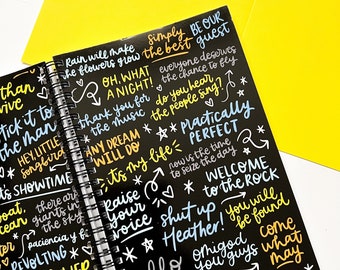 than
rive
stick it to
the man
HEY, LITTLE
Songbird
it's SHOWTIME
good,
clean
there are
giants in
the sky
paciencia y
REVOLTING
rain will make
the flowers grow
simply
the best
BE OUR
guest
OH, WHAT
A NIGHT!
everyone deserves
the chance to fly
thank you for
the music
do you hear
the people sing?
Practically
PERFECT
ANY DREAM
WILL DO
now is the time
to seize the day
it's my life
WELCOME
to the ROCK
raise
your
voice
shut up
Heather!
you will
be found
omigod
you guys
come
what
may